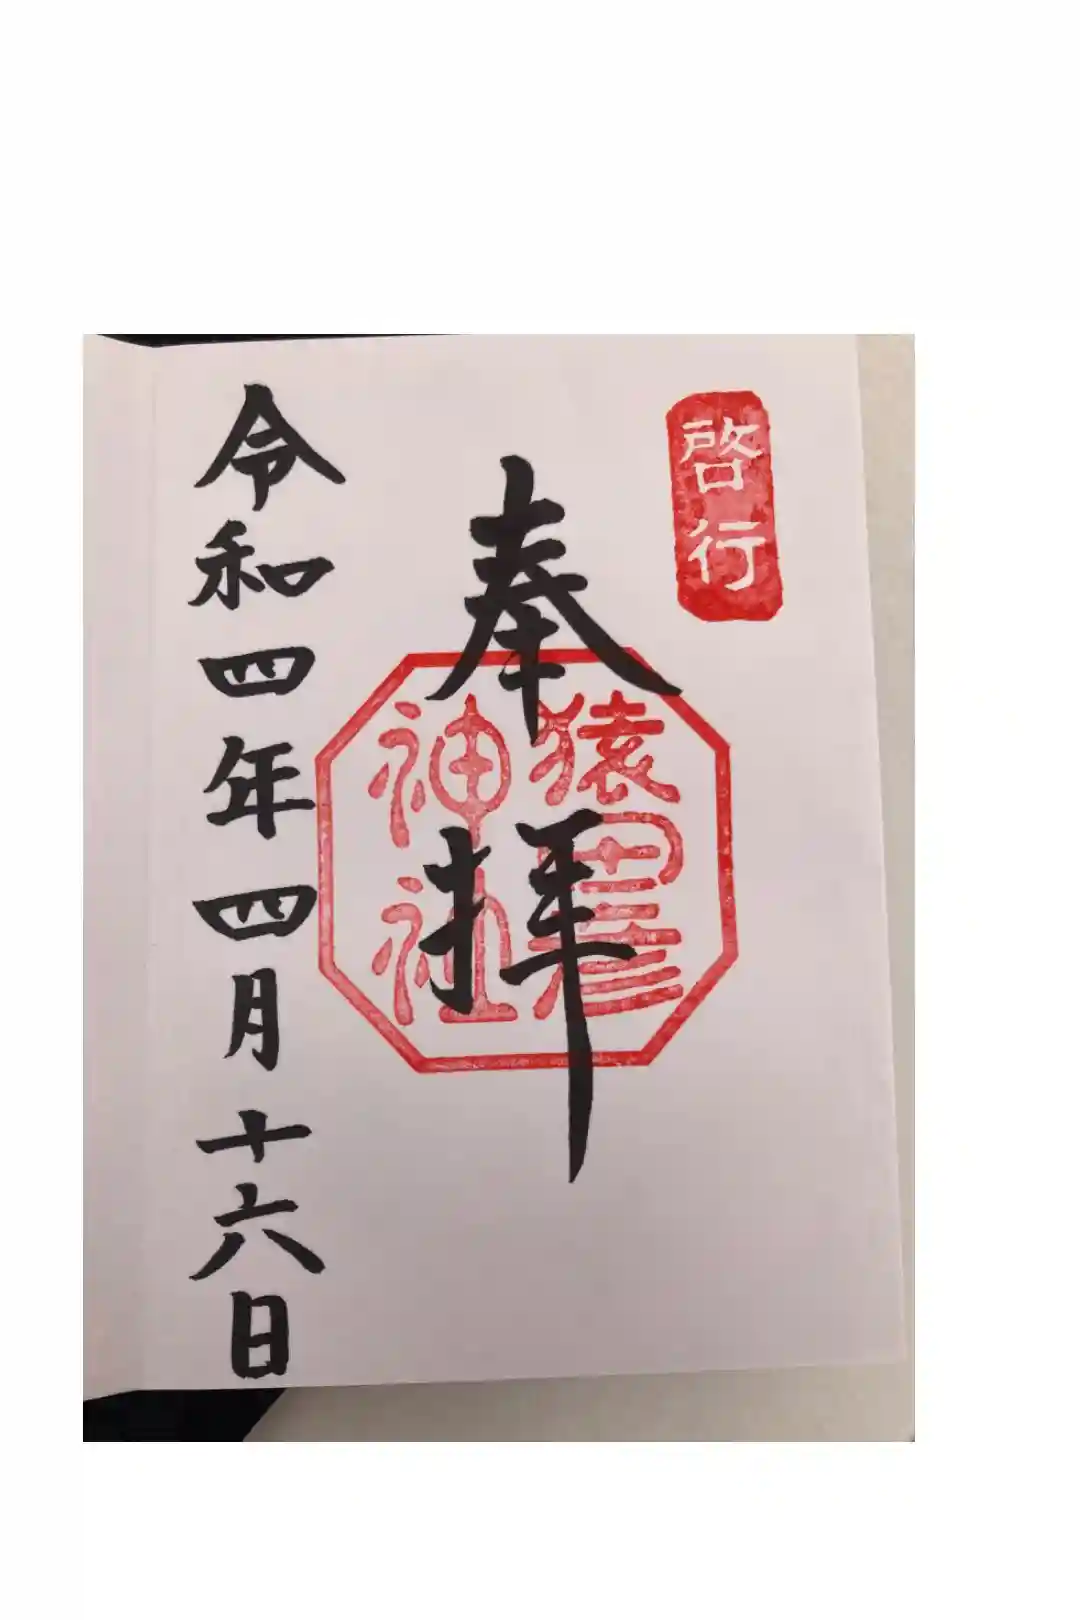 啓行
奉拝
猿田彦
神社
令和四年四月十六日